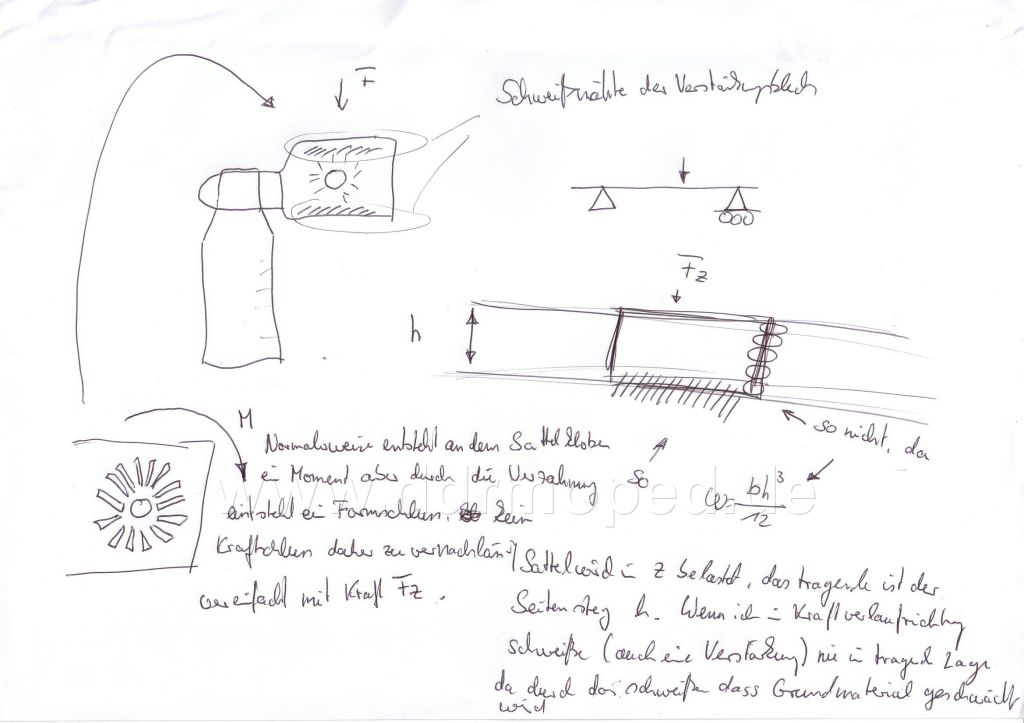 F
Schweißnähte der Verstärkungsblech
Fz
h
M
Normalerweise entsteht an dem Sattelkloben
ein Moment aber durch die Verzahnung
entsteht ein Formschluss. kein
Kraftschluss daher zu vernachlässig
vereinfacht mit Kraft Fz.
so nicht, da
So
= bh³
12
www.ddrmoped.de
Sattel wird in z belastet, das tragende ist der
Seitensteg h. Wenn ich in Kraftverlaufrichtung
schweiße (auch eine Verstärkung) nie in tragend Lage
da durch das schweißen dass Grundmaterial geschwächt
wird